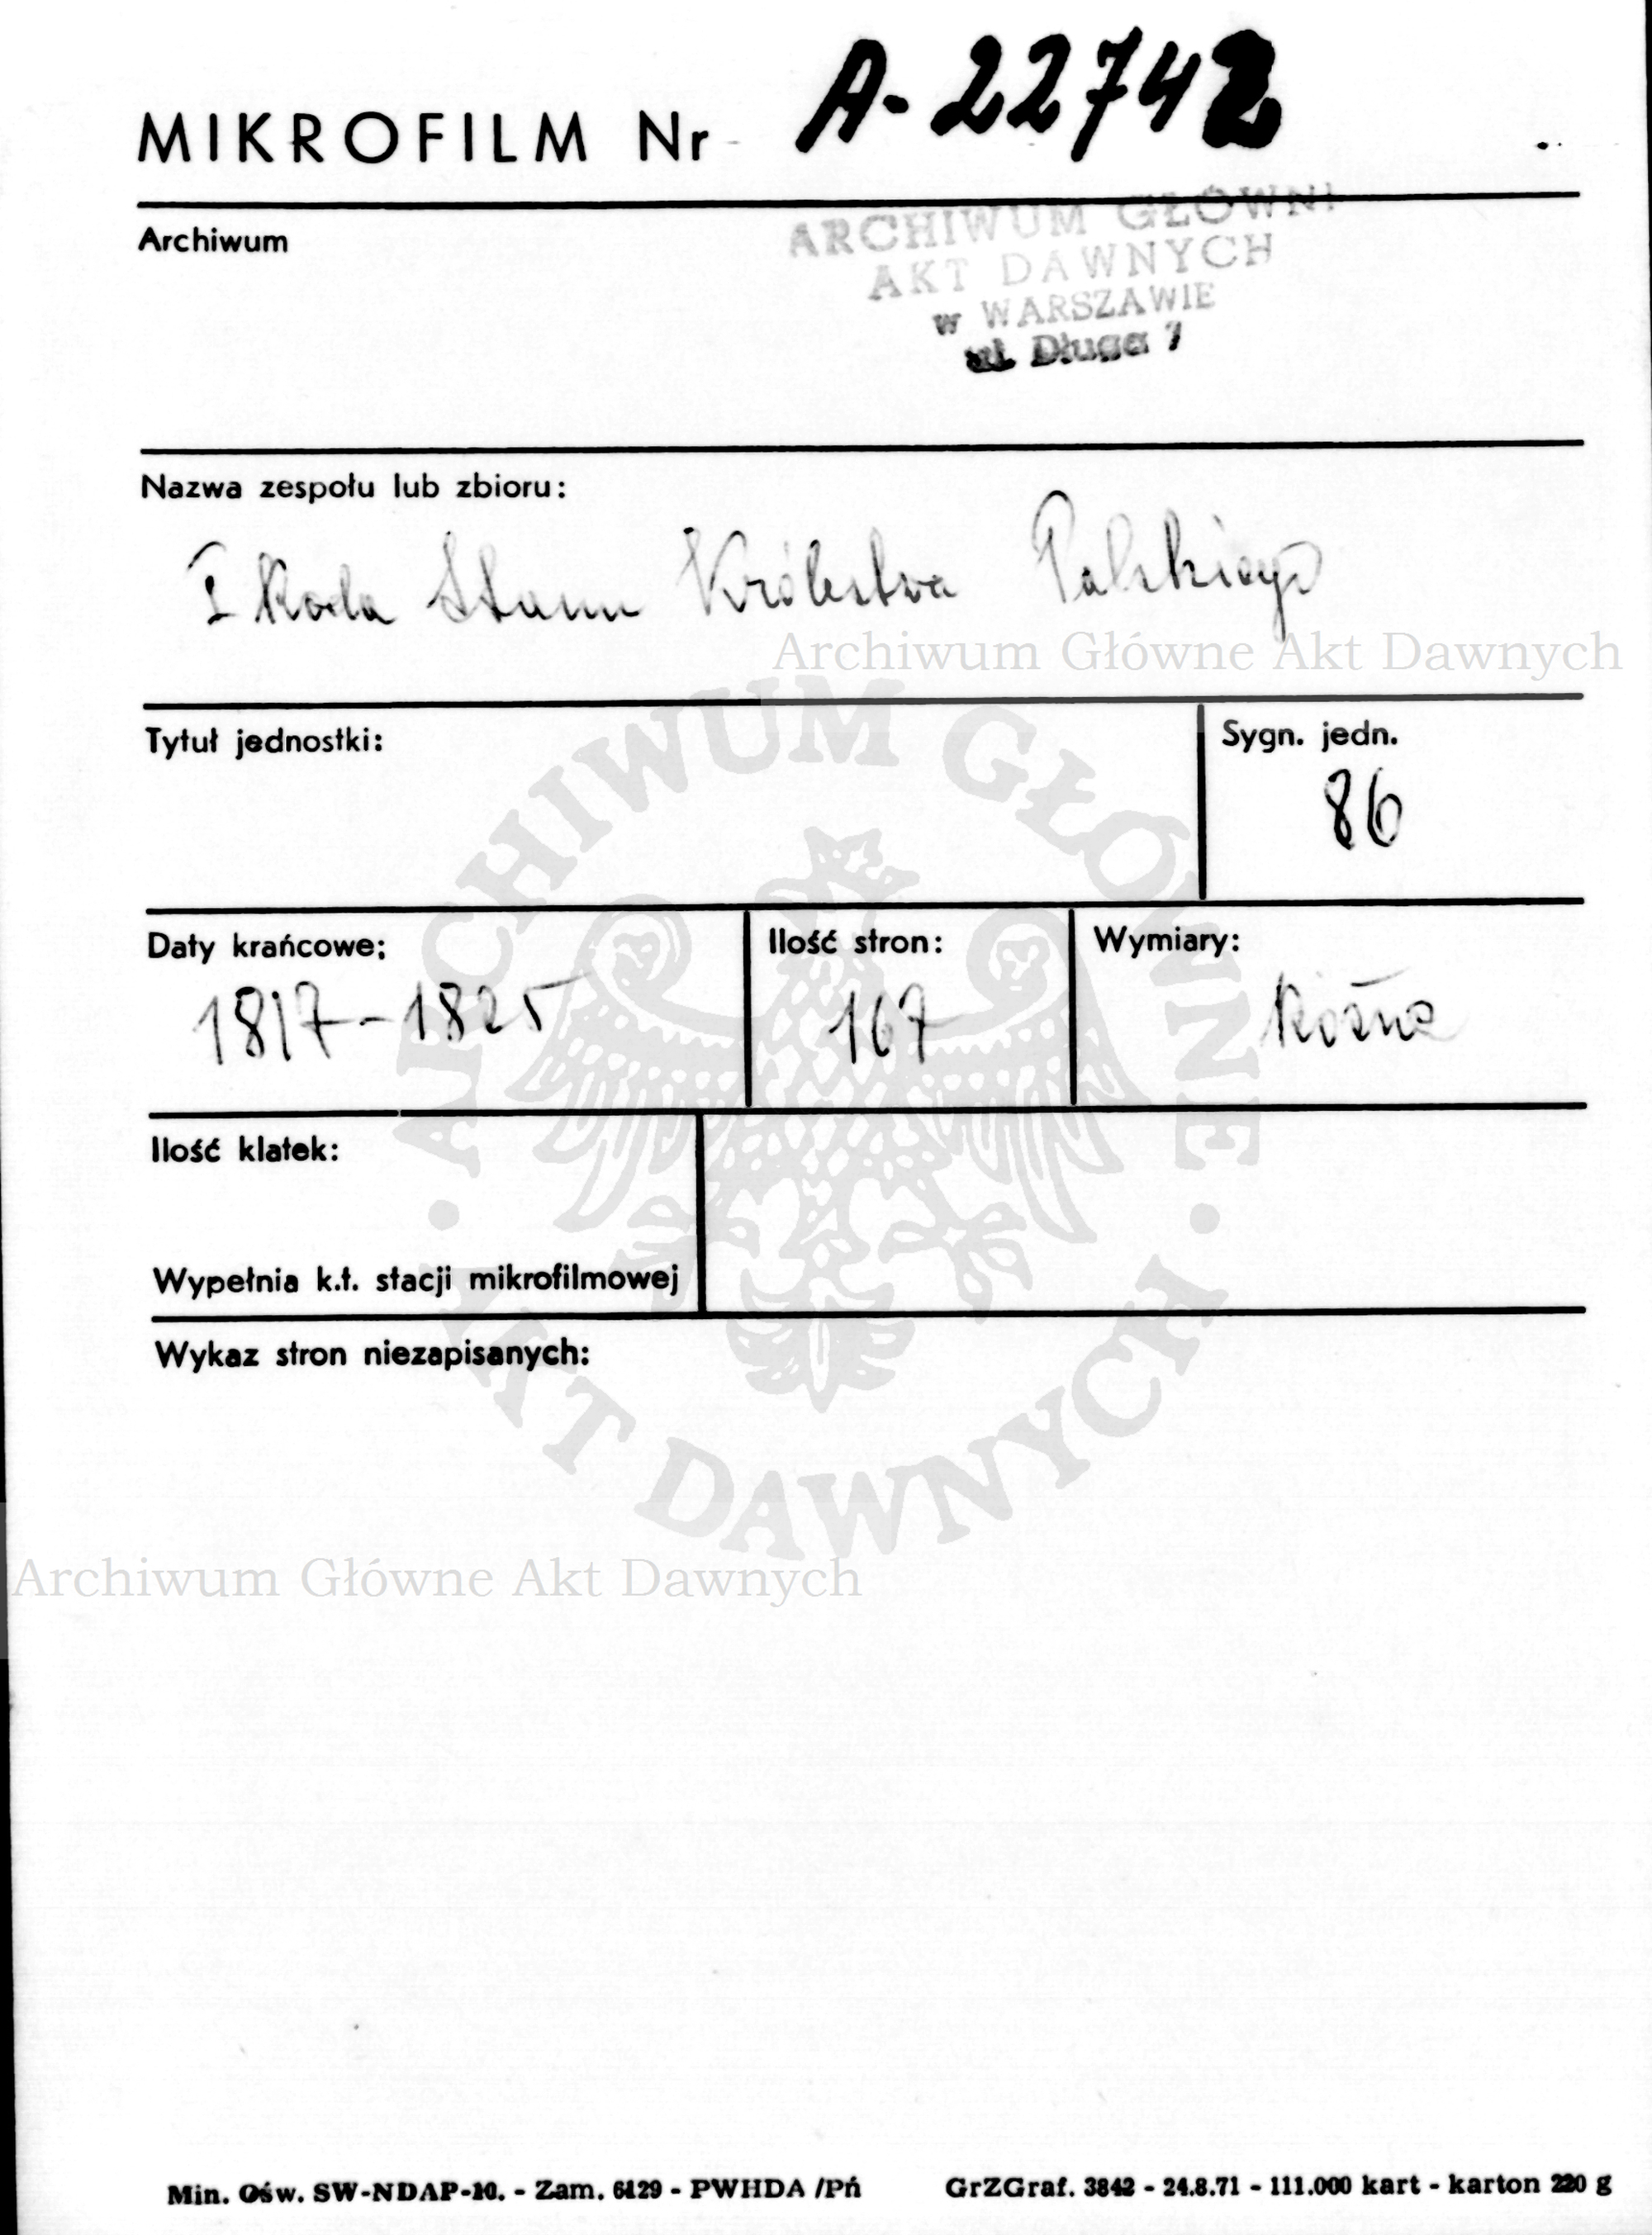 MIKROFILM Nr A-22742
Archiwum
ARCHIWUM GŁÓWNE
AKT DAWNYCH
w WARSZAWIE
ul. Długa 7
Nazwa zespołu lub zbioru:
I Rada Stanu Królestwa Polskiego
Archiwum Główne Akt Dawnych
Tytuł jednostki:
Sygn. jedn.
86
Daty krańcowe:
1817-1825
Ilość stron:
167
Wymiary:
Różne
Ilość klatek:
Wypełnia k.t. stacji mikrofilmowej
Wykaz stron niezapisanych:
ARCHIWUM GŁÓWNE
AKT DAWNYCH
Archiwum Główne Akt Dawnych
Min. Ośw. SW-NDAP-10. - Zam. 6129 - PWHDA /Pń GrZGraf. 3842 - 24.8.71 - 111.000 kart - karton 220 g